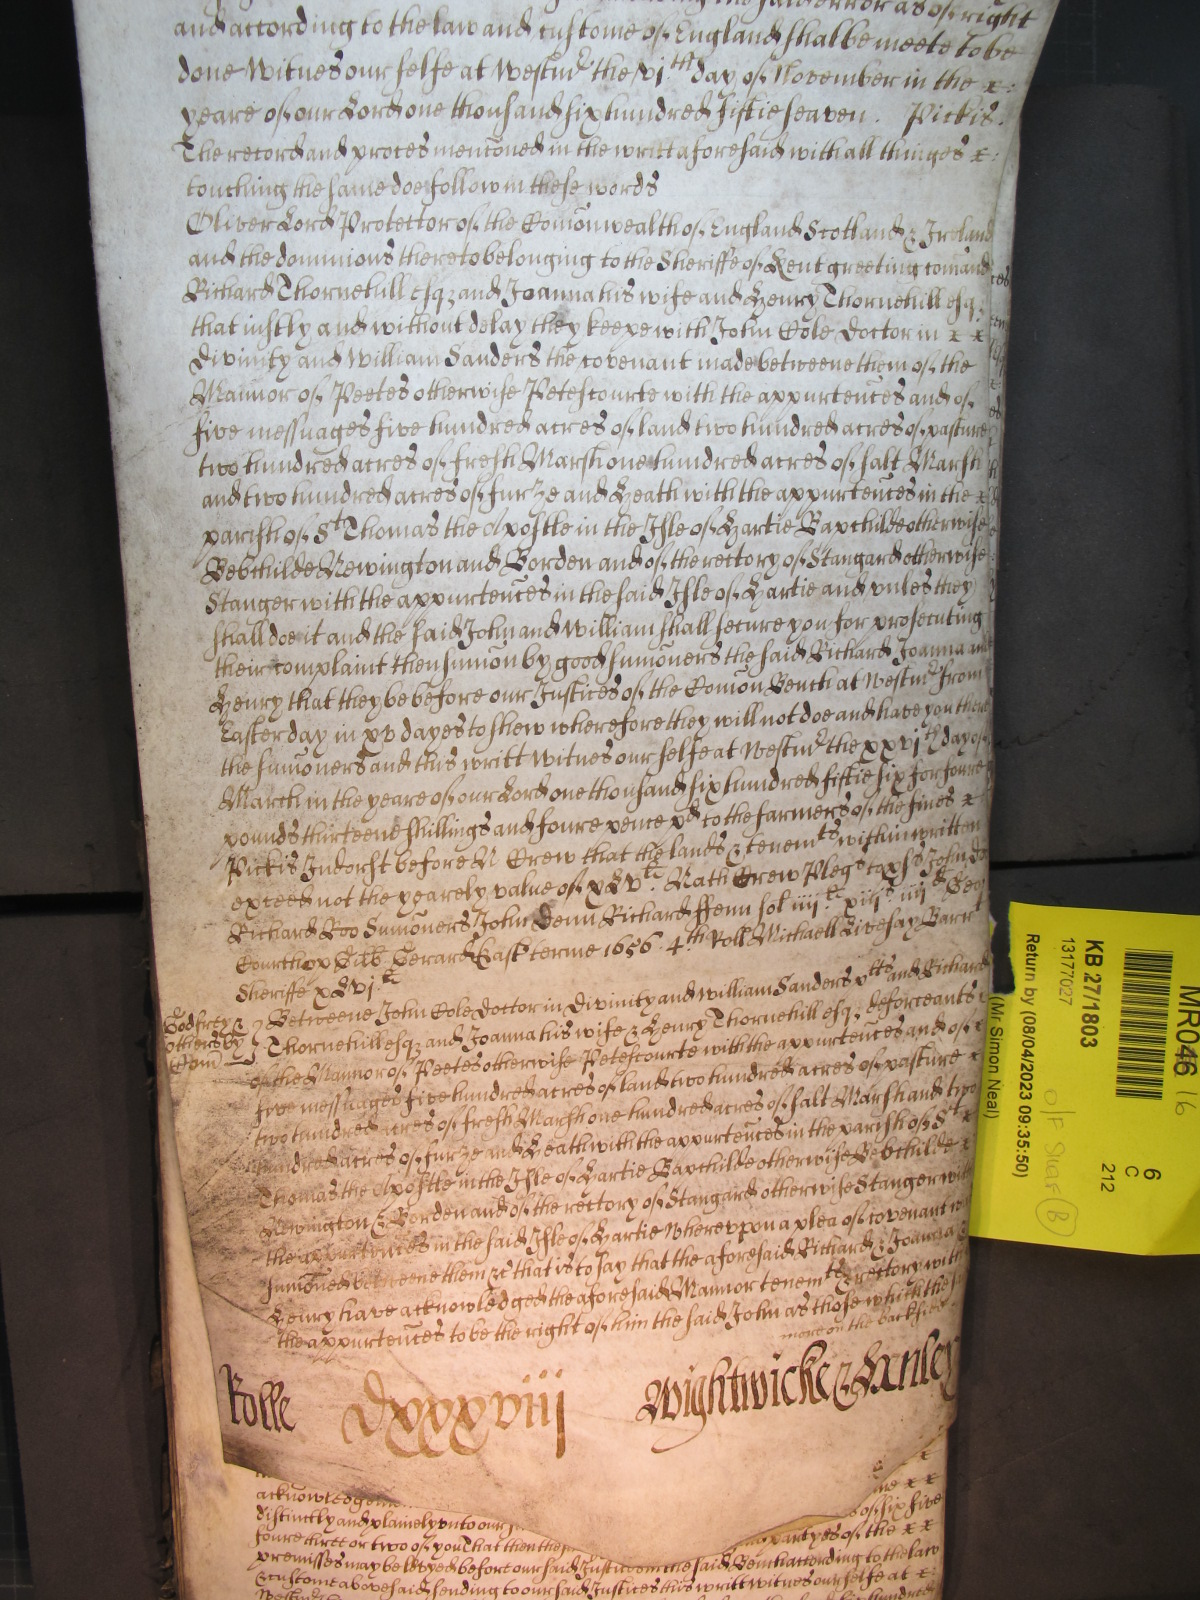 the said error as of right
and according to the law and custome of England shalbe meete to be
done Witnes our selfe at Westmr the vjth day of November in the x:
yeare of our Lord one thousand six hundred fiftie seaven. Pickis.
The record and proces menconed in the writt aforesaid with all thinges x:
touching the same doe follow in these words
Oliver Lord Protector of the Comonwealth of England Scotland & Ireland
and the dominions thereto belonging to the Sheriffe of Kent greeting comand
Richard Thornehill esqz and Joanna his wife and Henry Thornehill esqz
that iustly and without delay they keepe with John Cole doctor in x x
divinity and William Sanders the covenant made betweene them of the
Mannor of Peetes otherwise Petescourte with the appurtences and of
five messuages five hundred acres of land two hundred acres of pasture
two hundred acres of fresh Marsh one hundred acres of salt Marsh
and two hundred acres of furze and Heath with the appurtences in the x
parish of St Thomas the Apostle in the Isle of Hartie Bapchilde otherwise
Bebchilde Newington and Borden and of the rectory of Stangard otherwise
Stanger with the appurtences in the said Isle of Hartie and vnles they
shall doe it and the said John and William shall secure you for prosecuting
their complaint then sumon by good sumoners the said Richard Joanna and
Henry that they be before our Justices of the Comon Bench at Westmr from
Easter day in xv dayes to shew wherefore they will not doe and have you there
the sumoners and this writt Witnes our selfe at Westmr the xxvjth day of
March in the yeare of our Lord one thousand six hundred fiftie six for foure
pounds thirteene shillings and foure pence pd to the farmers of the fines x
Pickis Indorst before N Crew that the lands & tenemts within written
exceed not the yearely value of Nath Crew Pleg John
Richard Roo Sumoners John Denn Richard ffenn sol iiijli xiijs iiijd
Courthop Gilb Gerard East terme 1656. 4th Roll Michaell Livesay Barrt
Sheriffe
Godfrey &
others by
Betweene John Cole doctor in divinity and William Sanders and Richard
Thornehill esqz and Joanna his wife & Henry Thornehill esqz deforceants
of the Mannor of Peetes otherwise Petescourte with the appurtences and of
five messuages five hundred acres of land two hundred acres of pasture x
two hundred acres of fresh Marsh one hundred acres of salt Marsh and two
hundred acres of furze and Heath with the appurtences in the parish of St x
Thomas the Apostle in the Isle of Hartie Bapchilde otherwise Bebchilde x
Newington & Borden and of the rectory of Stangard otherwise Stanger with
the appurtences in the said Isle of Hartie Wherevpon a plea of covenant
sumoned betweene them &c that is to say that the aforesaid Richard & Joanna
Henry have acknowledged the aforesaid Mannor tenemts & rectory with
the appurtences to be the right of him the said John as those which the
more on the backside
Rolle dxxxviij Wightwicke & Henley
acknowledgem
distinctly and plainely vnto our of six five
foure three or two of you That then the partyes of the x x
premisses may be levyed before our said Justices the said Bench according to the law
& custome abovesaid sending to our said Justices this writt witnes our selfe at x
MR046 16
6
C
212
KB 27/1803
13177027
Return by (08/04/2023 09:35:50)
(Mr Simon Neal)
B